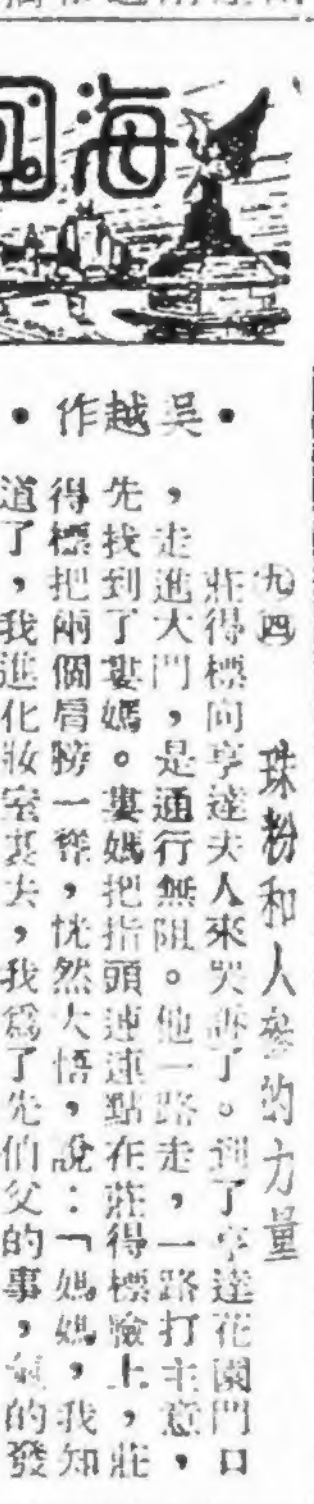 海
•吳越作•
九四　珠粉和人參的力量
莊得標向亨達夫人來哭訴了。到了亨達花園門口
，走進大門，是通行無阻。他一路走，一路打主意，
先找到了婁媽。婁媽把指頭連連點在莊得標臉上，莊
得標把兩個肩膀一聳，恍然大悟，說：「媽媽，我知
道了，我進化妝室裏去，我爲了先伯父的事，氣的發